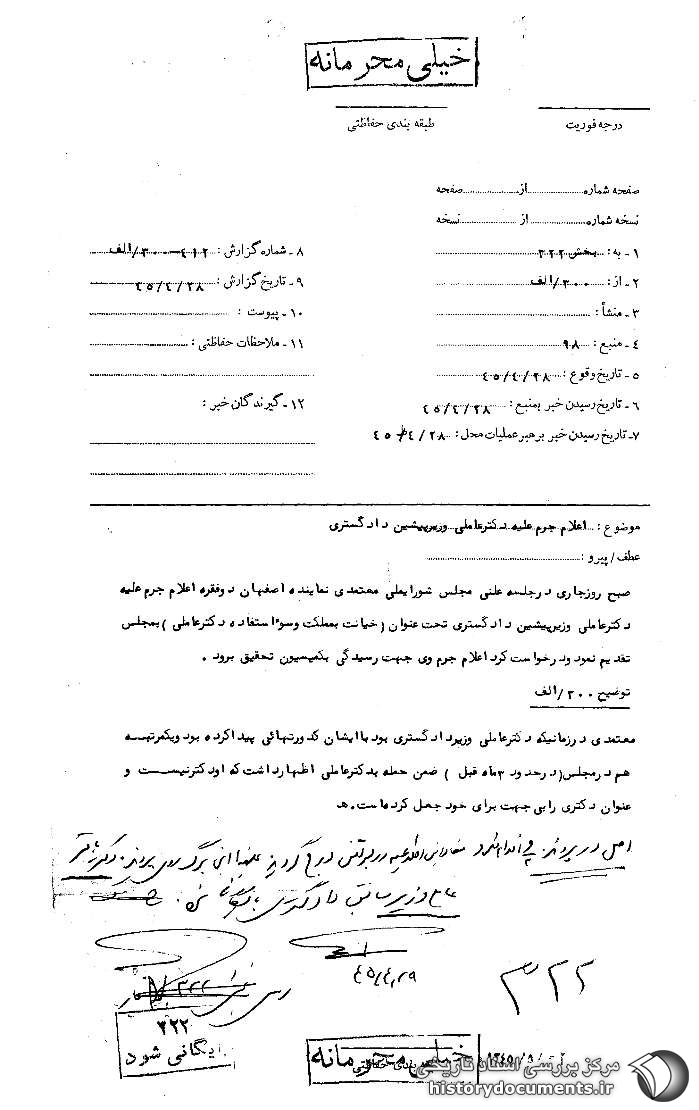 خیلی محرمانه
درجه فوریت
طبقه بندی حفاظتی
صفحه شماره از صفحه
نسخه شماره از نسخه
۱ـ به: بخش ۳۲۲
۲ـ از: ۳۰۰/الف
۳ـ منشأ:
۴ـ منبع: ۹۸
۵ـ تاریخ وقوع: ۴۵/۴/۲۸
۶ـ تاریخ رسیدن خبر بمنبع: ۴۵/۴/۲۸
۷ـ تاریخ رسیدن خبر برهبر عملیات محل: ۴۵/۴/۲۸
۸ـ شماره گزارش: ۴۱۲ـ۳۰۰/الف
۹ـ تاریخ گزارش: ۴۵/۴/۲۸
۱۰ـ پیوست:
۱۱ـ ملاحظات حفاظتی:
۱۲ـ گیرندگان خبر:
موضوع: اعلام جرم علیه دکترعاملی وزیرپیشین دادگستری
عطف/پیرو:
صبح روزجاری درجلسه علنی مجلس شورایملی معتمدی نماینده اصفهان دوفقره اعلام جرم علیه
دکترعاملی وزیرپیشین دادگستری تحت عنوان (خیانت بمملکت وسوء استفاده دکترعاملی) بمجلس
تقدیم نمود ودرخواست کرد اعلام جرم وی جهت رسیدگی بکمیسیون تحقیق برود.
توضیح ۳۰۰/الف
معتمدی درزمانیکه دکترعاملی وزیردادگستری بود باایشان کدورتهائی پیداکرده بود ویکمرتبه
هم درمجلس (درحدود ۳ماه قبل) ضمن حمله بدکترعاملی اظهارداشت که او دکترنیست و
عنوان دکتری رابی جهت برای خود جعل کرده است. هـ
اصل در پرونده
وزیر سابق دادگستری بایگانی شود.
۴۵/۴/۲۹
۳۲۲
۳۲۲
بایگانی شود
خیلی محرمانه
طبقه بندی حفاظتی
مرکز بررسی اسناد تاریخی
historydocuments.ir